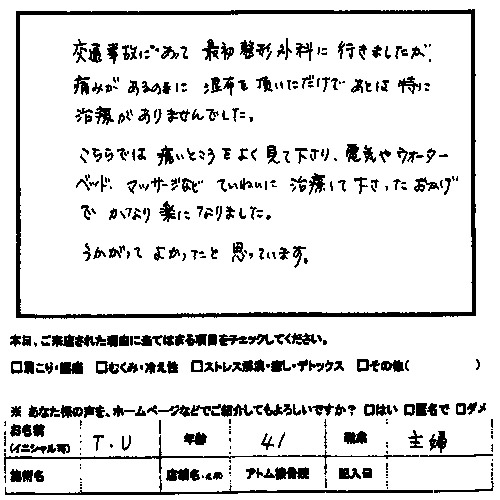 交通事故にあって 最初 整形外科に 行きましたが、
痛みが あるのに 湿布を 頂いただけで あとは 特に
治療が ありませんでした。
こちらでは 痛いところを よく 見て 下さり、電気や ウォーター
ベッド、マッサージなど ていねいに 治療して 下さった おかげ
で かなり 楽に なりました。
うかがって よかったと 思っています。
本日、ご来店された理由に当てはまる項目をチェックしてください。
□肩こり・腰痛 □むくみ・冷え性 □ストレス解消・癒し・デトックス □その他( )
※ あなた様の声を、ホームページなどでご紹介してもよろしいですか? □はい □匿名で □ダメ
お名前
(イニシャル可) T.U 年齢 41 職業 主婦
施術名 店舗名 アトム接骨院 記入日